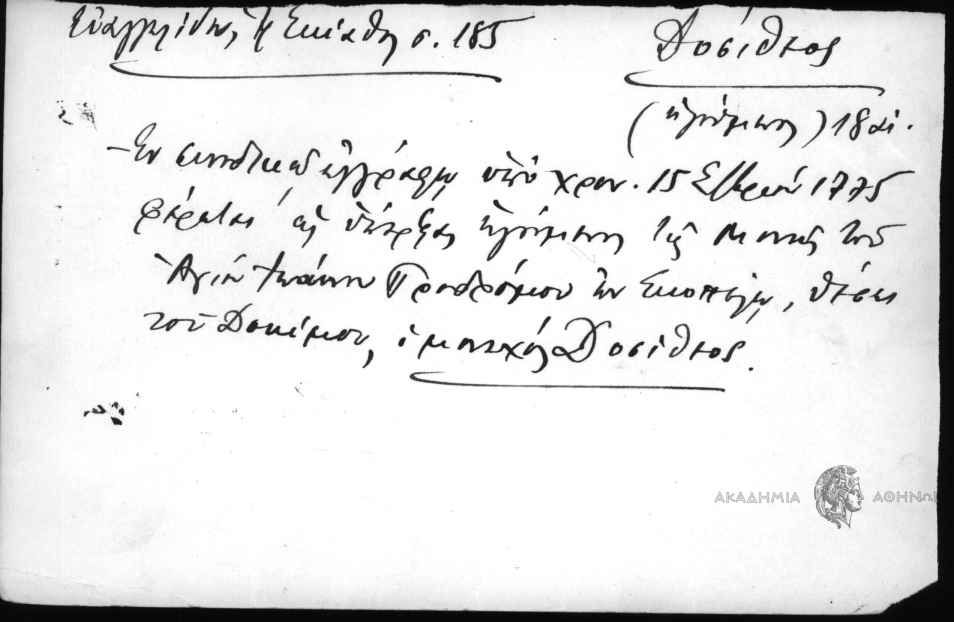 Ευαγγελίδης, Η Σκίαθος σ. 185
Δοσίθεος
(ηγούμενος) 18 αι.
– Εν συνοδικώ εγγράφω υπό χρον. 15 Σ/βρίου 1775
φέρεται ως υπάρξας ηγούμενος της Μονής του
Αγίου Ιωάννου Προδρόμου εν Σκοπέλω, θέσει
του Δοκίμου, ο μοναχός Δοσίθεος.
ΑΚΑΔΗΜΙΑ ΑΘΗΝΩΝ